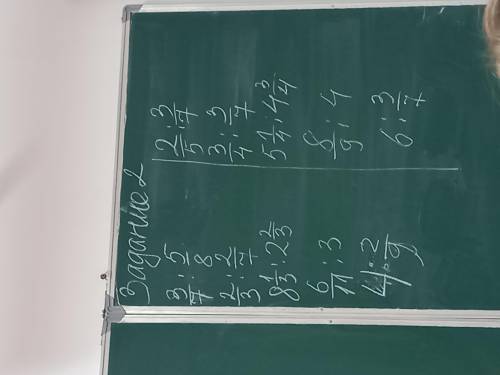 Задание 2
3/7 : 5/8
2/3 : 2/7
8 1/3 : 2 2/3
6/11 : 3
4 : 2/9
2/5 : 3/7
3/4 : 3/7
5 1/4 : 4 3/4
8/9 : 4
6 : 3/7